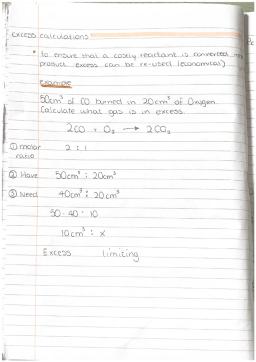 excess calculations
• to ensure that a costly reactant is converted into
product excess can be re-used (economical)
Example
50cm³ of CO burned in 20cm³ of Oxygen.
Calculate what gas is in excess.
2CO + O₂ → 2CO₂
① molar ratio 2 : 1
② Have 50cm³ : 20cm³
③ Need 40cm³ : 20cm³
50 - 40 = 10
10cm³ : x
Excess limiting